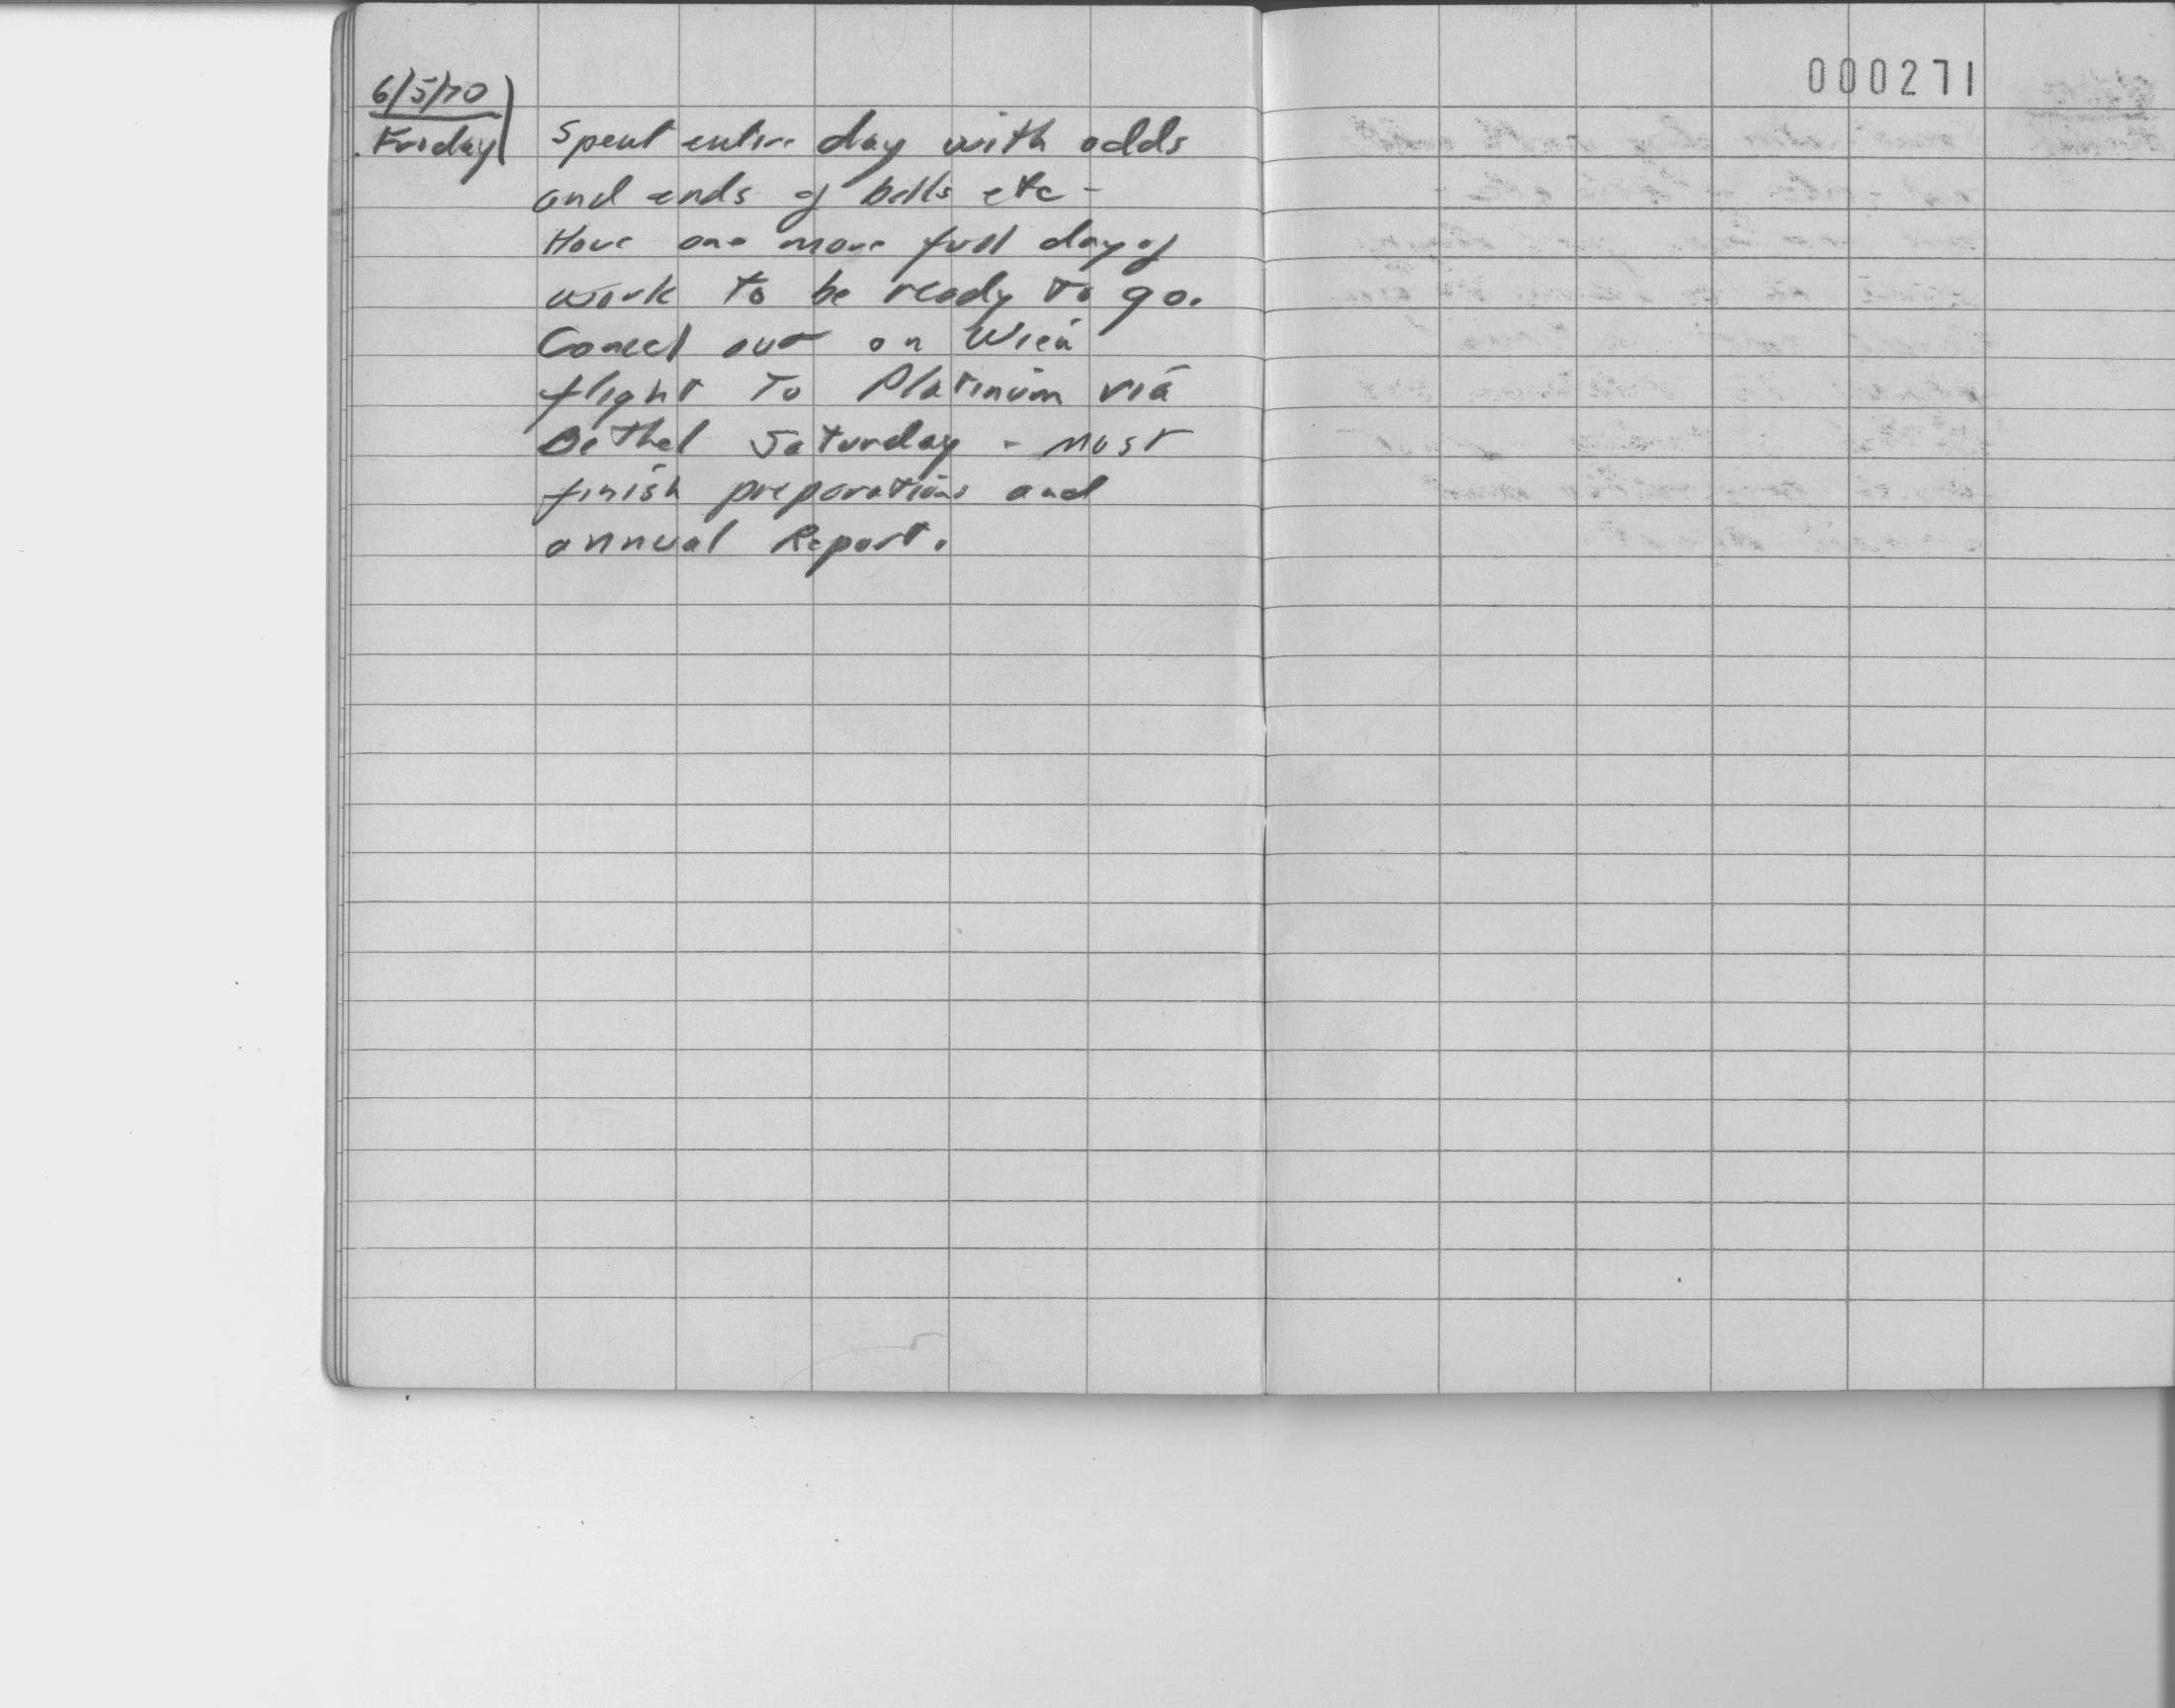 6/5/70
Friday
Spent entire day with odds
and ends of bills etc -
Have one more full day of
work to be ready to go.
Cancel out on Wien
flight to Platinum via
Bethel Saturday - must
finish preparations and
annual Report.
000271